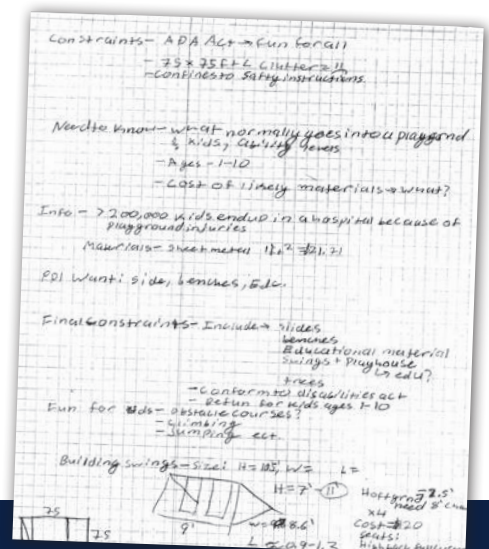 Constraints - ADA Act → Fun for all
- 75 x 75 ft
- Confines to safty instructions
Need to know - what normally goes into a playgrnd
& kids, ability levels
- Ages - 1-10
- Cost of likely materials → what?
Info - > 200,000 kids end up in a hospital because of
playground injuries
Materials - sheet metal
want: slide, benches, Edc.
Final Constraints - Include → slides
benches
Educational material
swings + Playhouse
↳ edu?
trees
- Conform to disabilities act
- Be fun for kids ages 1-10
Fun for kids - obstacle courses?
- climbing
- jumping ect.
Building swings - size: H = W = L =
H = 7' - 11'
9'
x4
Cost = $20
seats:
75
75